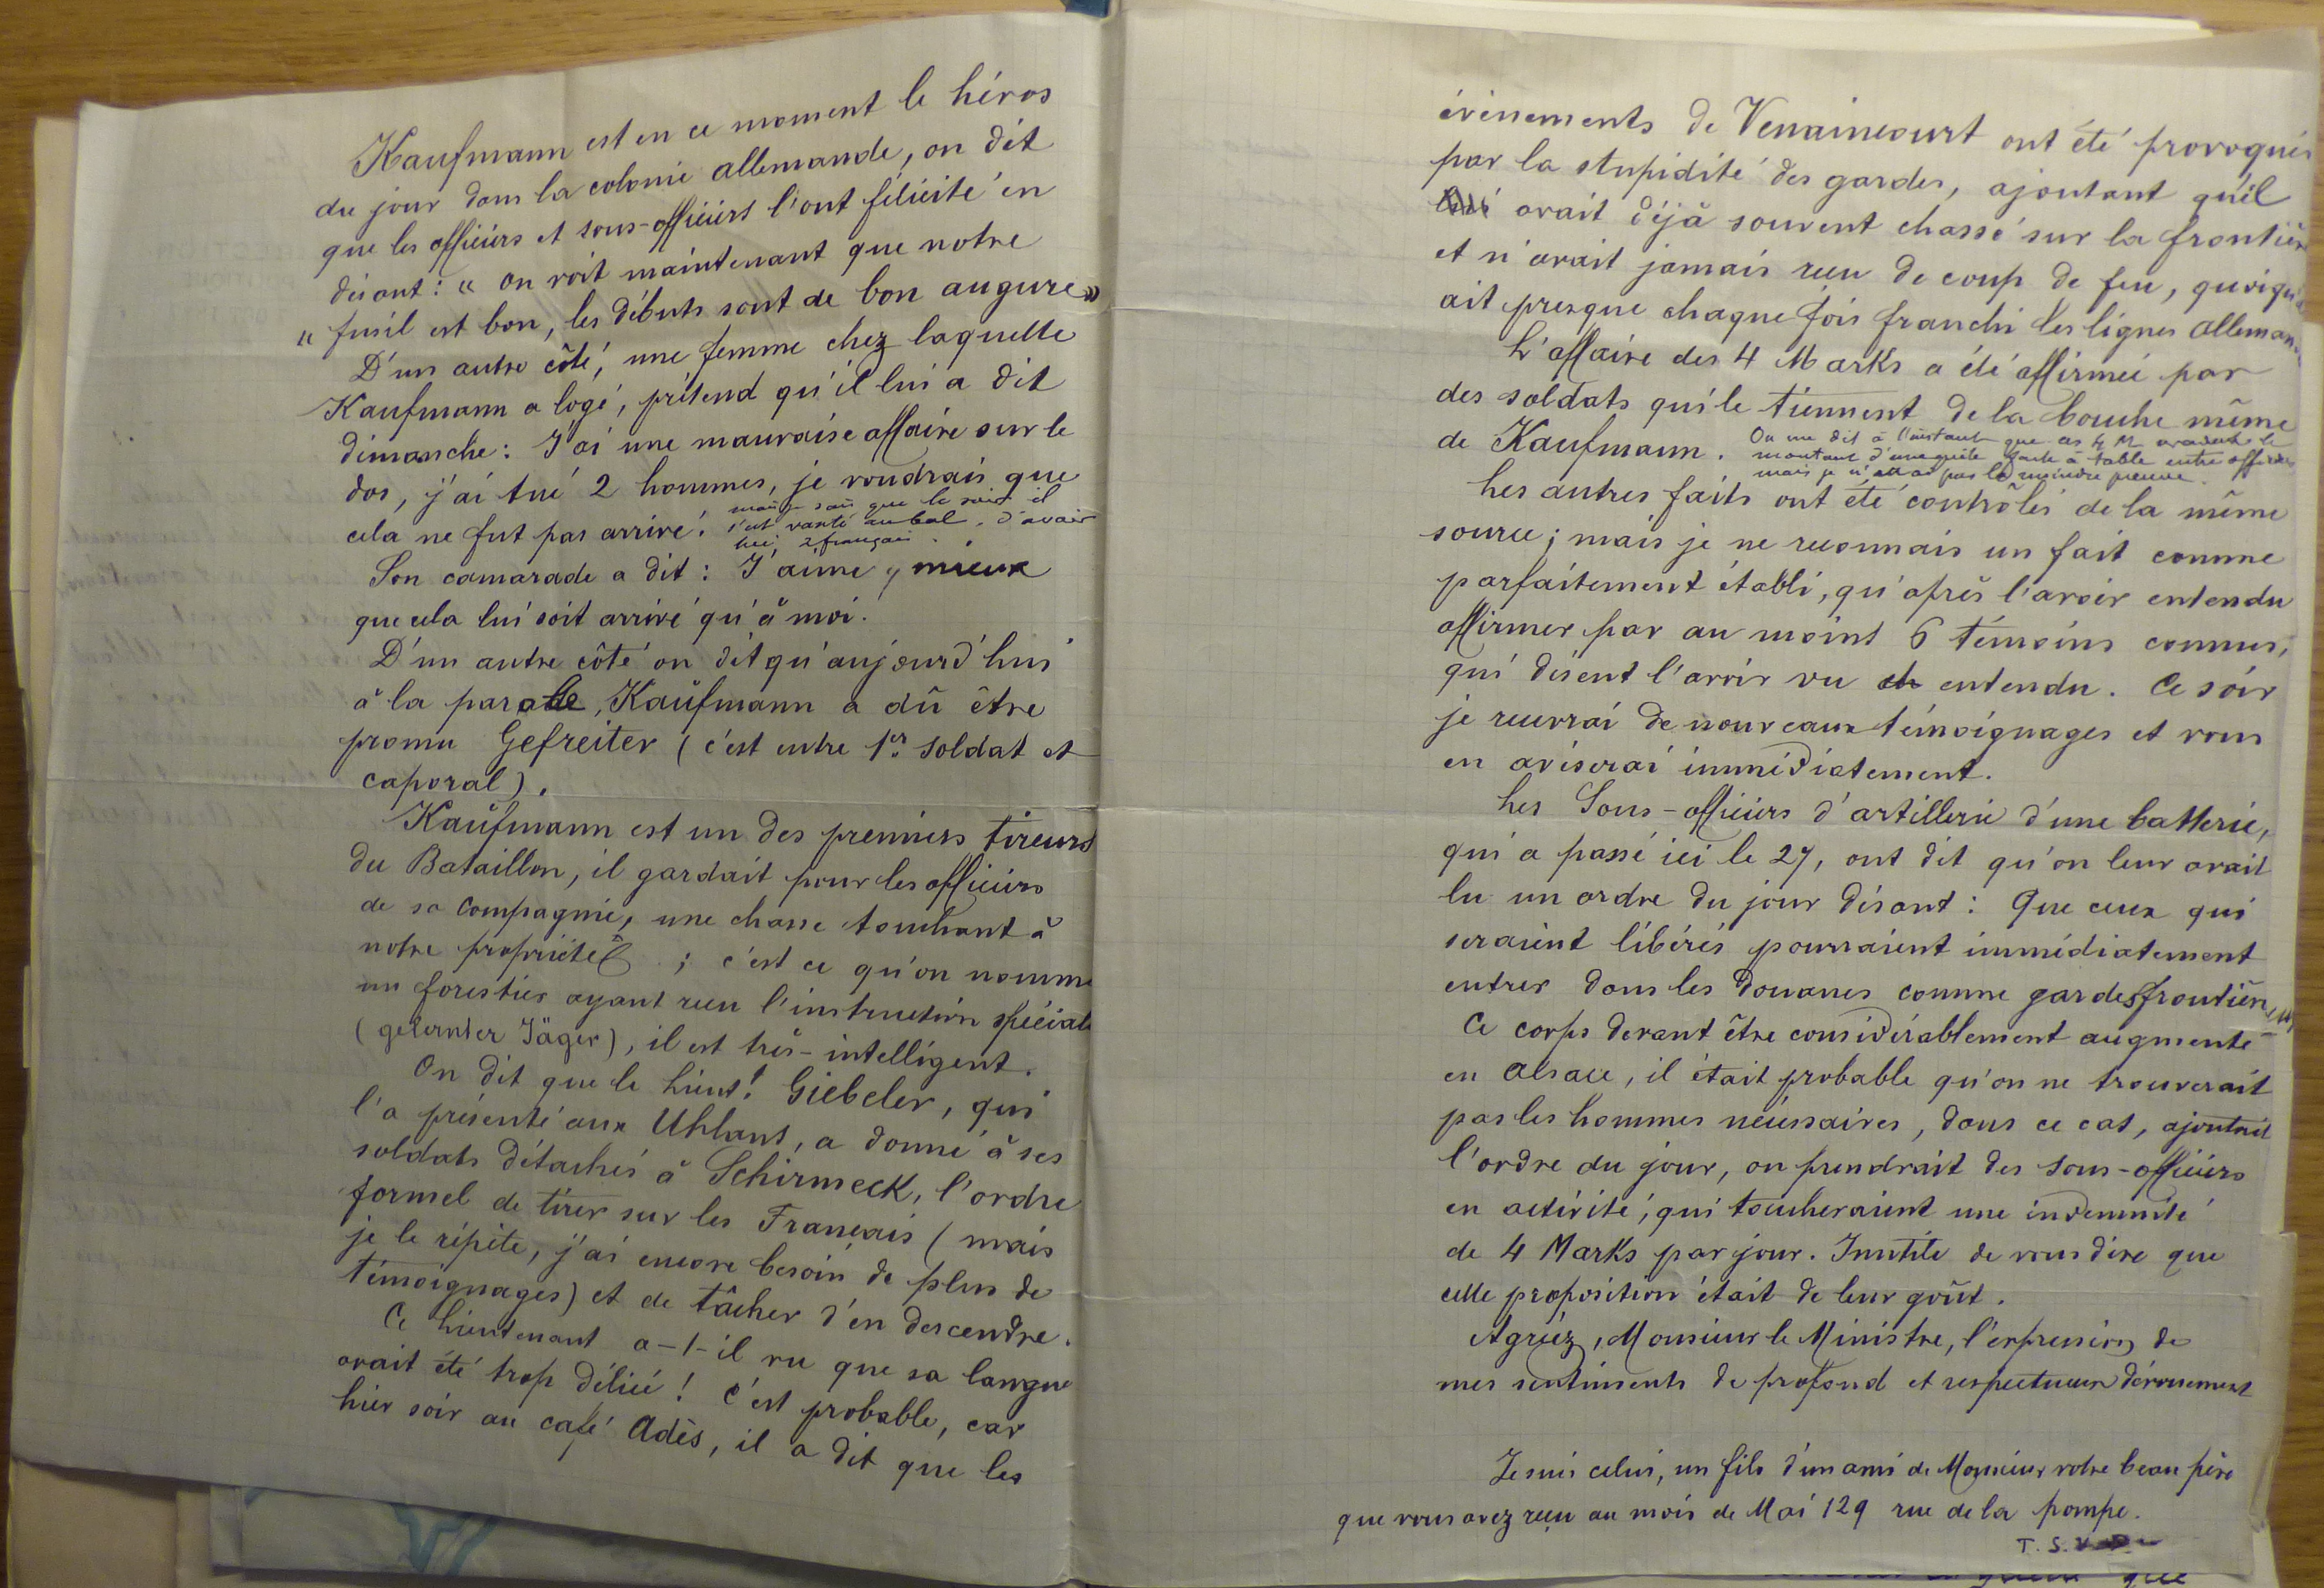 Kaufmann est en ce moment le héros
du jour dans la colonie allemande, on dit
que les officiers et sous-officiers l'ont félicité en
disant : « on voit maintenant que notre
« fusil est bon, les débuts sont de bon augure »
D'un autre côté, une femme chez laquelle
Kaufmann a logé, prétend qu'il lui a dit
dimanche : J'ai une mauvaise affaire sur le
dos, j'ai tué 2 hommes, je voudrais que
cela ne fut pas arrivé !
mais je sais que le soir il
s'est vanté au bal d'avoir
tué 2 français.
Son camarade a dit : J'aime mieux
que cela lui soit arrivé qu'à moi.
D'un autre côté on dit qu'aujourd'hui
à la parade, Kaufmann a dû être
promu Gefreiter (c'est entre 1er soldat et
caporal).
Kaufmann est un des premiers tireurs
du Bataillon, il gardait pour les officiers
de sa Compagnie, une chasse touchant à
notre propriété ; c'est ce qu'on nomme
un forestier ayant reçu l'instruction spéciale
(gelernter Jäger), il est très-intelligent.
On dit que le Lieut! Giebeler, qui
l'a présenté aux Uhlans, a donné à ses
soldats détachés à Schirmeck, l'ordre
formel de tirer sur les Français (mais
je le répète, j'ai encore besoin de plus de
témoignages) et de tâcher d'en descendre.
Ce Lieutenant a-t-il vu que sa langue
avait été trop déliée ! C'est probable, car
hier soir au café Adès, il a dit que les
évènements de Vexaincourt ont été provoqués
par la stupidité des gardes, ajoutant qu'il
avait déjà souvent chassé sur la frontière
et n'avait jamais reçu de coup de feu, quoiqu'il
ait presque chaque fois franchi les lignes allemandes
L'affaire des 4 Marks a été affirmée par
des soldats qui le tiennent de la bouche même
de Kaufmann.
On me dit à l'instant que ces 4 M avaient le
montant d'une quête faite à table entre officiers
mais je n'en ai pas la moindre preuve.
Les autres faits ont été contrôlés de la même
source ; mais je ne reconnais un fait comme
parfaitement établi, qu'après l'avoir entendu
affirmer par au moint 6 témoins connus,
qui disent l'avoir vu et entendu. Ce soir
je recevrai de nouveaux témoignages et vous
en aviserai immédiatement.
Les Sous-officiers d'artillerie d'une batterie,
qui a passé ici le 27, ont dit qu'on leur avait
lu un ordre du jour disant : Que ceux qui
seraient libérés pourraient immédiatement
entrer dans les douanes comme gardes frontière
Ce corps devant être considérablement augmenté
en Alsace, il était probable qu'on ne trouverait
pas les hommes nécessaires, dans ce cas, ajoutait
l'ordre du jour, on prendrait des Sous-officiers
en activité, qui toucheraient une indemnité
de 4 Marks par jour. Inutile de vous dire que
cette proposition était de leur goût.
Agréez, Monsieur le Ministre, l'expression de
mes sentiments de profond et respectueux dévouement
Je suis celui, un fils d'un ami de Monsieur votre beau père
que vous avez reçu au mois de Mai 129 rue de la pompe.
T. S. V.